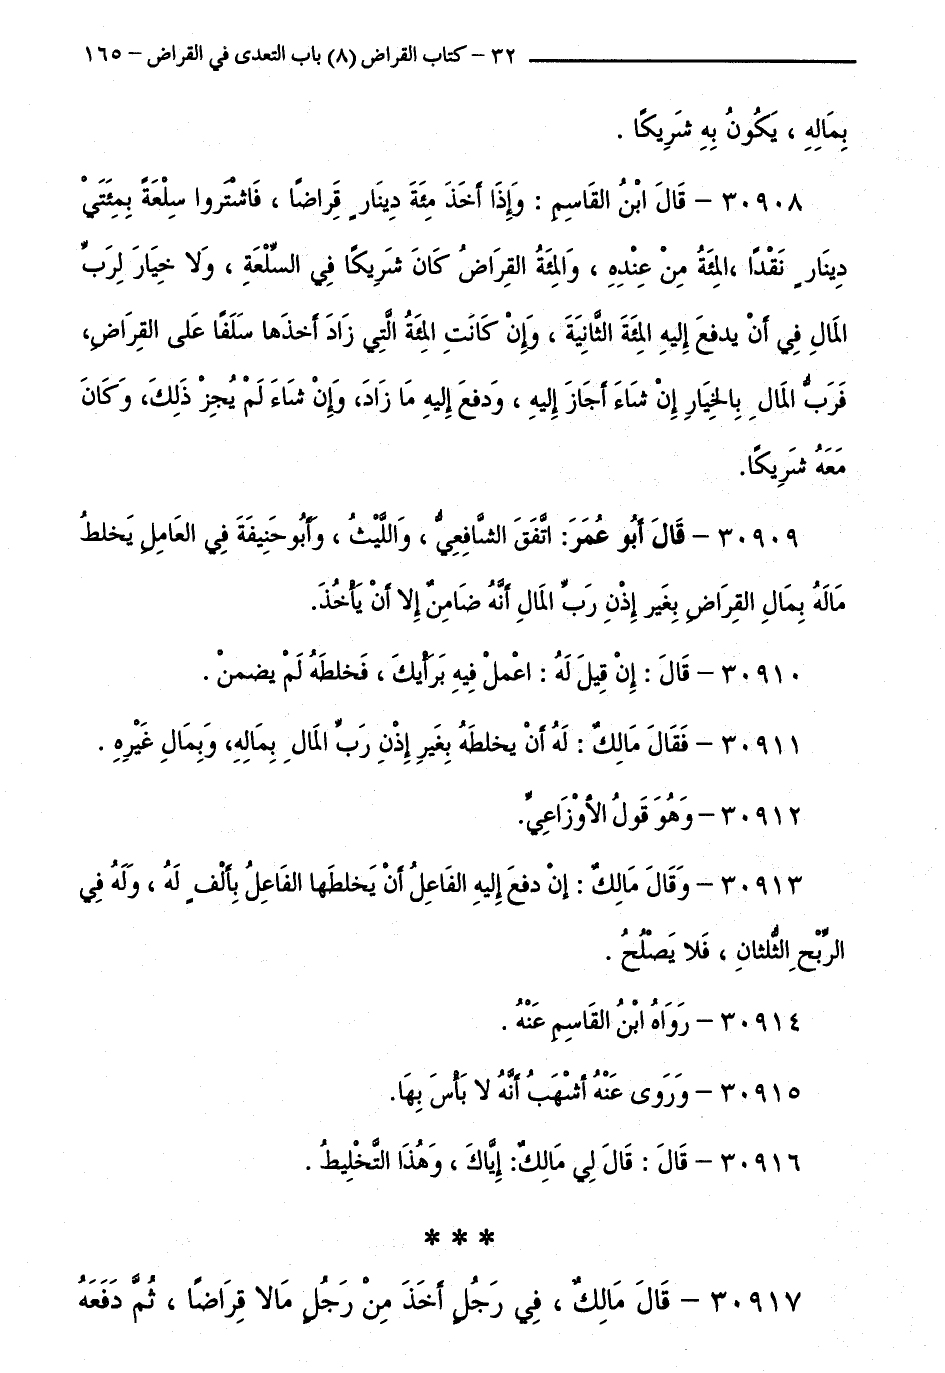 ٣٢ – كتاب القراض (٨) باب التعدى في القراض – ١٦٥
بِمَالِهِ ، يَكُونُ بِهِ شَرِيكًا .
٣٠٩٠٨ – قَالَ ابْنُ القَاسِمِ : وَإِذَا أَخَذَ مِئَةَ دِينَارٍ قِرَاضًا ، فَاشْتَروا سِلْعَةً بِمِئَتَيْ
دِينَارٍ نَقْدًا ،المِئَةُ مِنْ عِنْدِهِ ، وَالمِئَةُ القِرَاضُ كَانَ شَرِيكًا فِي السِّلْعَةِ ، وَلا خِيَارَ لِرَبِّ
المَالِ فِي أَنْ يدفعَ إِليهِ المِئَةَ الثَّانِيَةَ ، وَإِنْ كَانَتِ المِئَةُ الَّتِي زَادَ أخذَها سَلَفًا عَلى القِرَاضِ،
فَرَبُّ المَالِ بِالخِيَارِ إِنْ شَاءَ أجَازَ إِليهِ ، وَدفعَ إِليهِ مَا زَادَ، وَإِنْ شَاءَ لَمْ يُجِزْ ذَلِكَ، وَكَانَ
مَعَهُ شَرِيكًا.
٣٠٩٠٩ – قَالَ أَبُو عُمَرَ: اتَّفَقَ الشَّافِعِيُّ ، وَاللَّيْثُ ، وَأَبُو حَنِيفَةَ فِي العَامِلِ يَخلطُ
مَالَهُ بِمَالِ القِرَاضِ بِغَيرِ إِذْنِ رَبِّ المَالِ أَنَّهُ ضَامِنٌ إِلا أَنْ يَأْخُذَ.
٣٠٩١٠ – قَالَ : إِنْ قِيلَ لَهُ : اعْملْ فِيهِ بَرَأْيكَ ، فَخلطَهُ لَمْ يضمنْ .
٣٠٩١١ – فَقَالَ مَالِكٌ : لَهُ أَنْ يخلطَهُ بِغَيرِ إِذْنِ رَبِّ المَالِ بِمَالِهِ، وَبِمَالِ غَيْرِهِ .
٣٠٩١٢ – وَهُوَ قَولُ الأوْزَاعِيِّ.
٣٠٩١٣ – وَقَالَ مَالِكٌ : إِنْ دفعَ إِليهِ الفَاعِلُ أَنْ يَخلطَها الفَاعِلُ بِأَلْفٍ لَهُ ، وَلَهُ فِي
الرِّبْحِ الثُّلثانِ ، فَلا يَصْلُحُ .
٣٠٩١٤ – رَوَاهُ ابْنُ القَاسِمِ عَنْهُ .
٣٠٩١٥ – وَرَوى عَنْهُ أَشْهَبُ أَنَّهُ لا بَأْسَ بِهَا.
٣٠٩١٦ – قَالَ : قَالَ لِي مَالِكٌ: إِيَّاكَ ، وَهُذَا التَّخْلِيطُ .
* * *
٣٠٩١٧ – قَالَ مَالِكٌ ، فِي رَجُلٍ أَخَذَ مِنْ رَجُلٍ مَالا قِرَاضًا ، ثُمَّ دَفَعَهُ